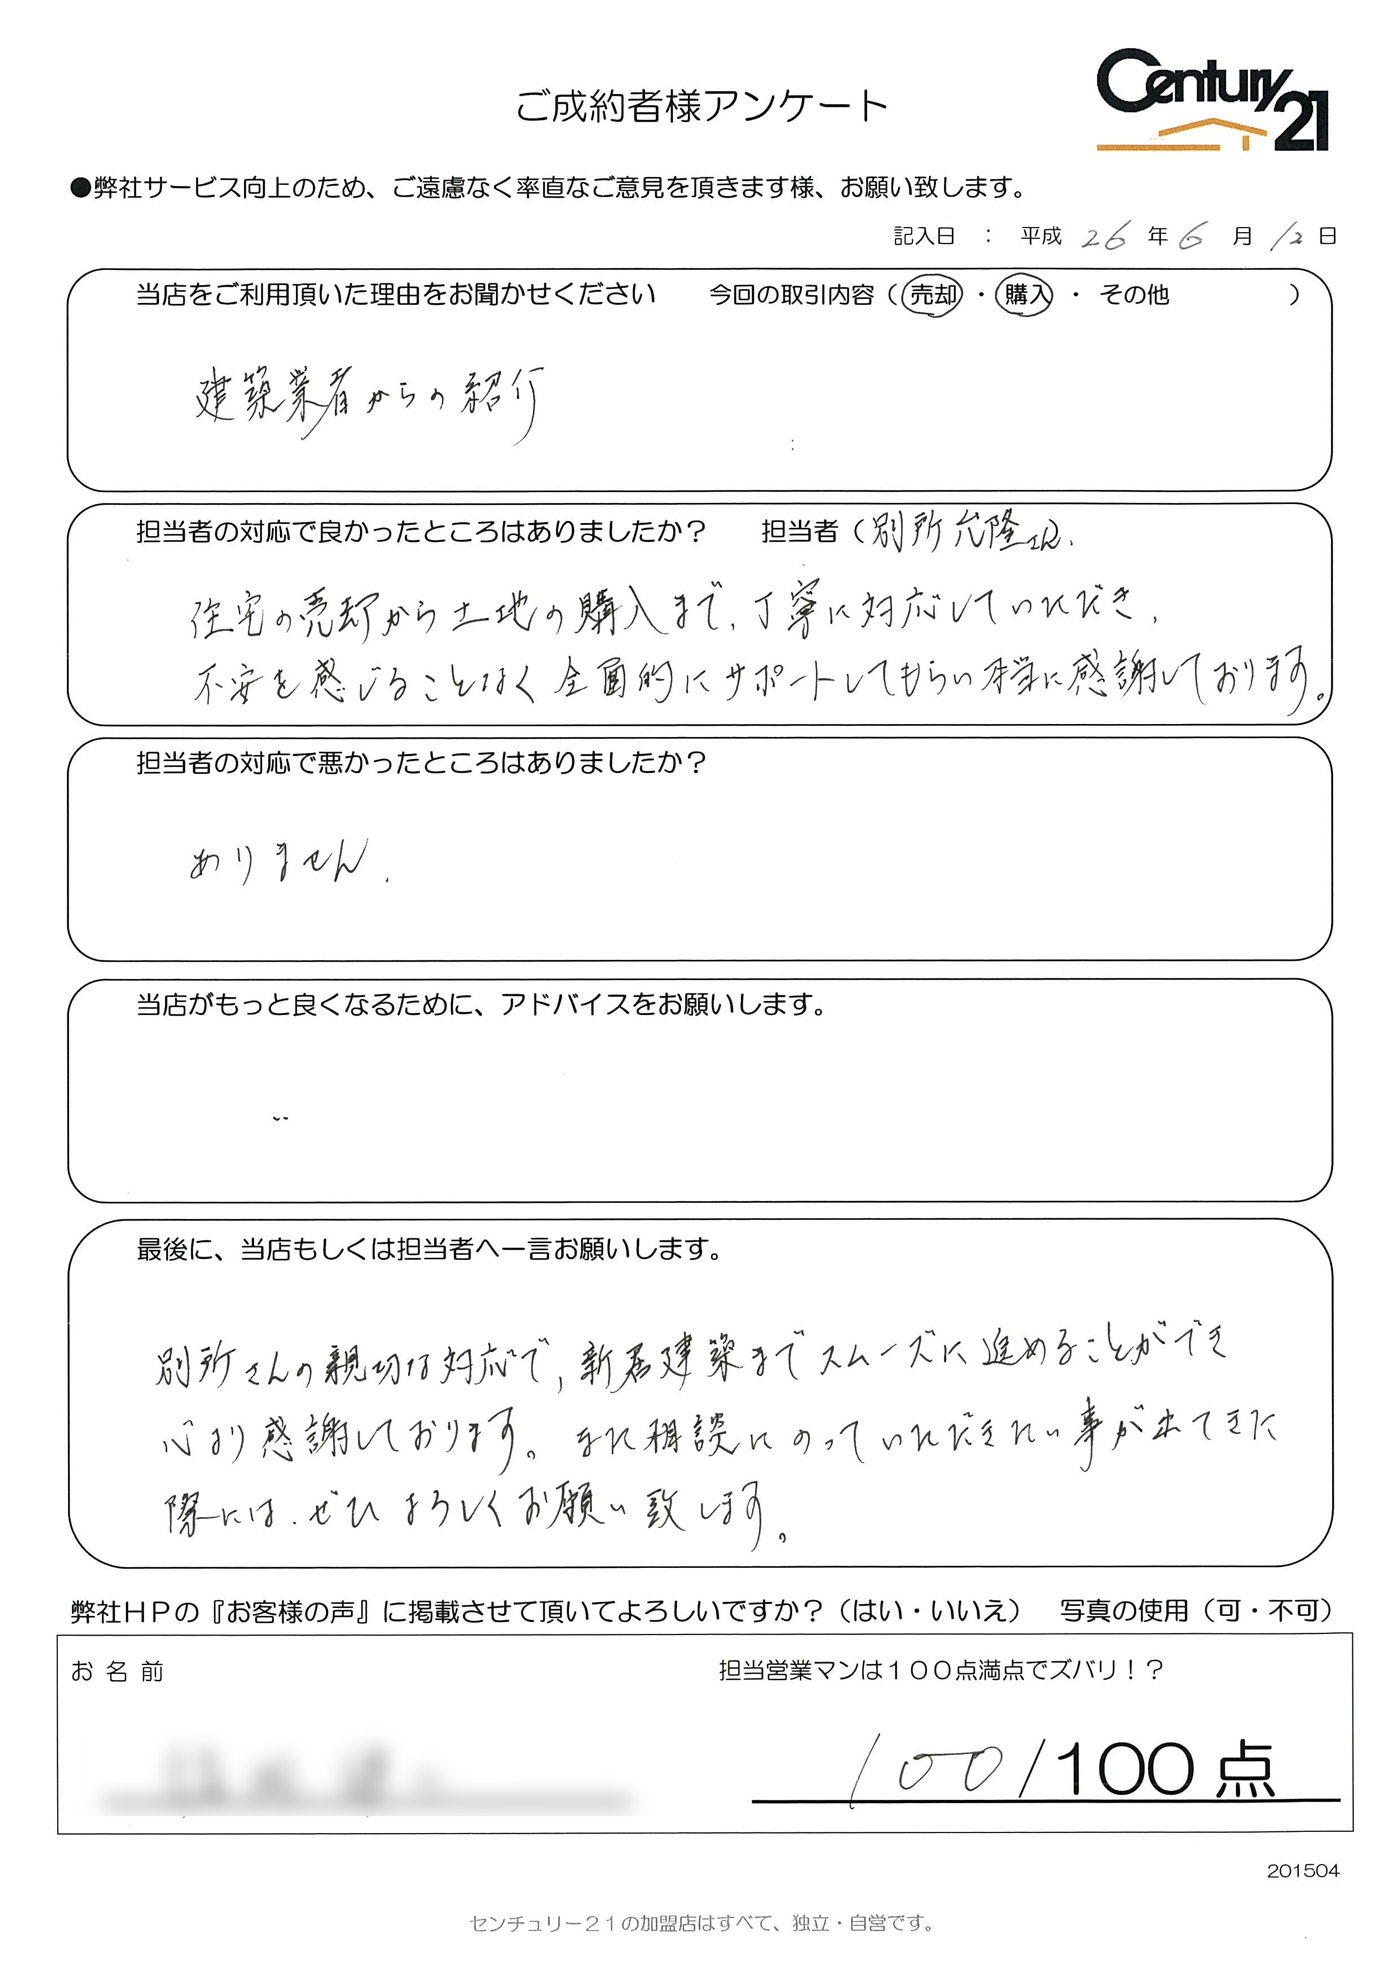 Century 21
ご成約者様アンケート
●弊社サービス向上のため、ご遠慮なく率直なご意見を頂きます様、お願い致します。
記入日 : 平成 26 年 6 月 12 日
当店をご利用頂いた理由をお聞かせください 今回の取引内容（売却・購入・その他 ）
建築業者からの紹介
担当者の対応で良かったところはありましたか？ 担当者（別所允隆さん.
住宅の売却から土地の購入まで、丁寧に対応していただき、
不安を感じることなく全面的にサポートしてもらい本当に感謝しております。
担当者の対応で悪かったところはありましたか？
ありません.
当店がもっと良くなるために、アドバイスをお願いします。
最後に、当店もしくは担当者へ一言お願いします。
別所さんの親切な対応で、新居建築までスムーズに進めることができ
心より感謝しております。また相談にのっていただきたい事が出てきた
際には、ぜひよろしくお願い致します。
弊社HPの『お客様の声』に掲載させて頂いてよろしいですか？（はい・いいえ） 写真の使用（可・不可）
お名前
担当営業マンは１００点満点でズバリ！？
100/100点
201504
センチュリー２１の加盟店はすべて、独立・自営です。